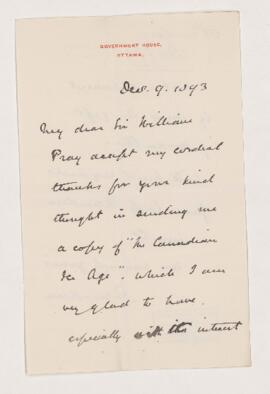 GOVERNMENT HOUSE,
OTTAWA.
Dec. 9. 1893
My dear Sir William
Pray accept my cordial
thanks for your kind
thought in sending me
a copy of "The Canadian
Ice Age". which I am
very glad to have.
especially with the interest